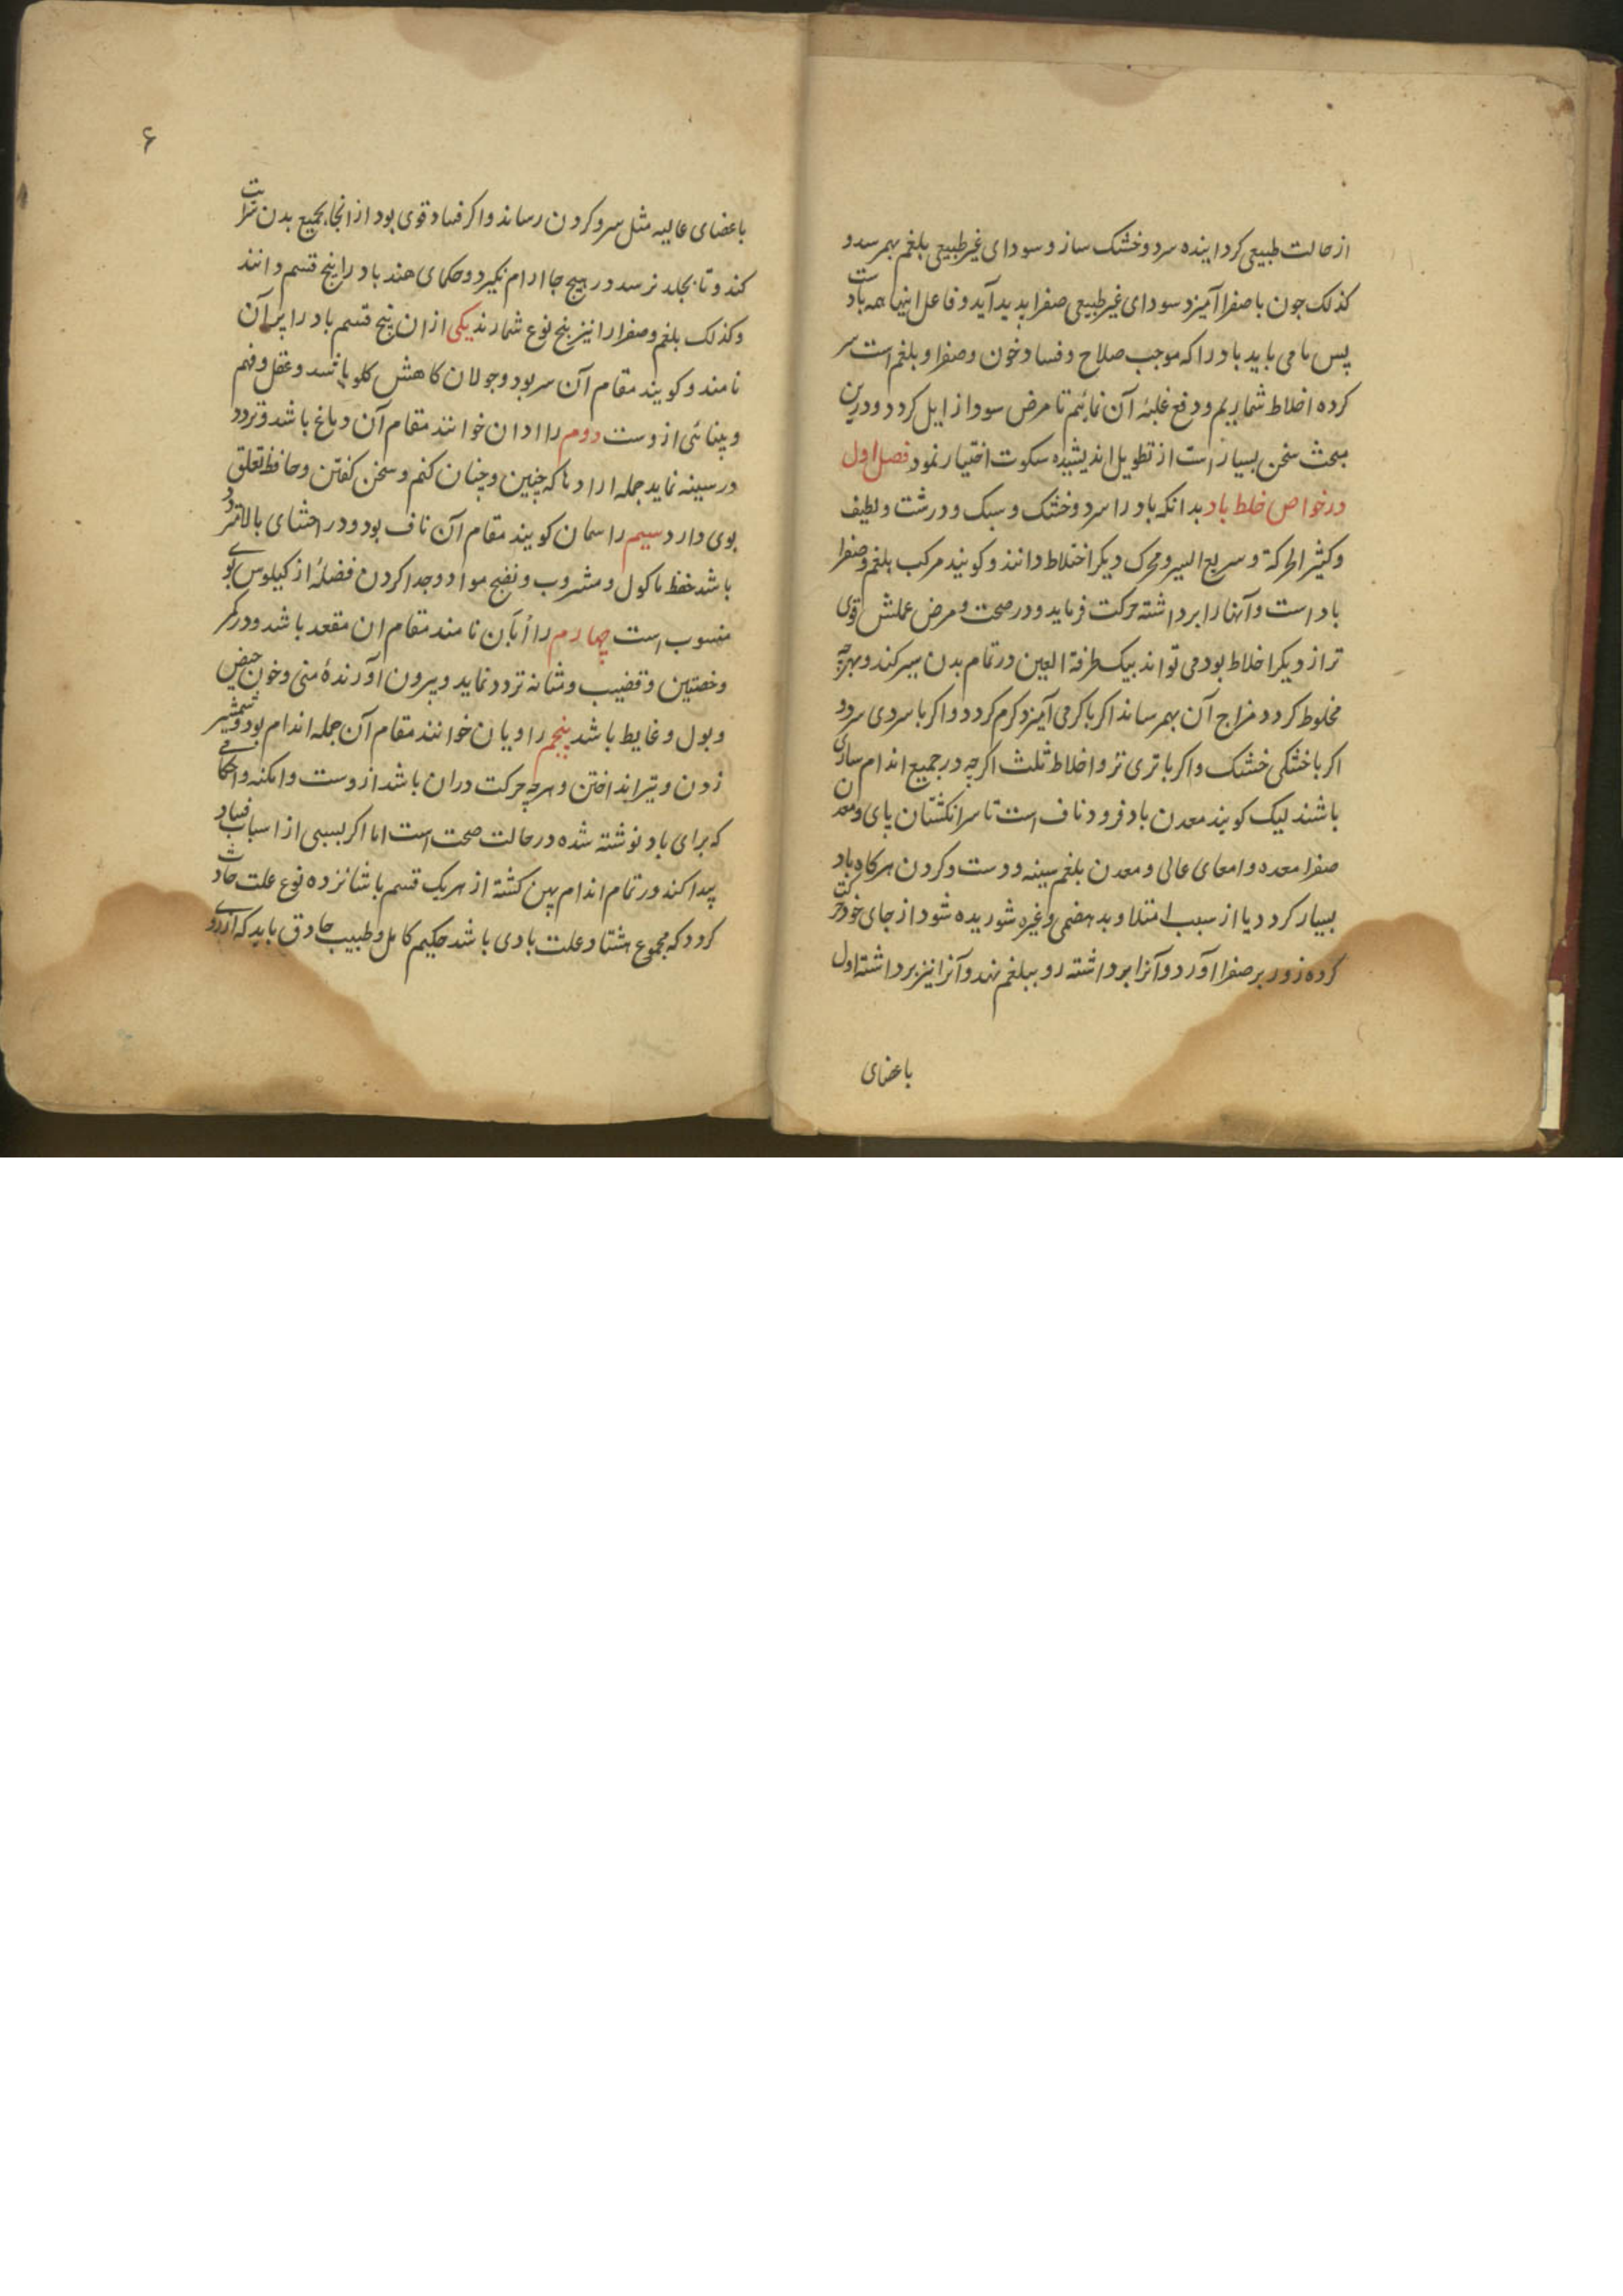 از حالت طبیعی کرداینده سرد و خشک سازد و سودای غیر طبیعی بلغم بهمرسد و
کذلک چون با صفرا آمیزد سودای غیر طبیعی صفرا پدید آید و فاعل اینها همه باد است
پس ما می باید باد را که موجب صلاح و فساد خون و صفرا و بلغم است سر
کرده اخلاط شماریم و دفع غلبهٔ آن نمائیم تا مرض سودا زایل کردد و درین
مبحث سخن بسیار است از تطویل اندیشیده سکوت اختیار نمود فصل اول
در خواص خلط باد بدانکه باد را سرد و خشک و سبک و درشت و لطیف
و کثیر الحرکة و سریع السیر و محرک دیکر اختلاط دانند و کویند مرکب بلغم و صفرا
باد است و آنها را برداشته حرکت فرماید و در صحت و مرض عملش قوی
تر از دیکر اخلاط بود می تواند بیک طرفة العین در تمام بدن سیر کند و بهرچه
مخلوط کردد مزاج آن بهمرساند اکر با کرمی آمیزد کرم کردد و اکر با سردی سرد
اکر با خشکی خشک و اکر با تری تر و اخلاط ثلث اکرچه در جمیع اندام ساری
باشند لیک کویند معدن باد فرود ناف است تا سر انکشتان پای و معدن
صفرا معده و امعای عالی و معدن بلغم سینه و دست و کردن هرکاه باد
بسیار کردد یا از سبب امتلا و بد هضمی و غیره شوریده شود از جای خود حرکت
کرده زور بر صفرا آورد و آنرا برداشته رو ببلغم نهد و آنرا نیز برداشته اول
باعضای
۶
باعضای عالیه مثل سر و کردن رساند و اکر فساد قوی بود از انجا بجمیع بدن سرایت
کند و تا بجلد نرسد در هیچ جا ارام نکیرد و حکمای هند باد را پنج قسم دانند
و کذلک بلغم و صفرا را نیز پنج نوع شمارند یکی از ان پنج قسم باد را پرآن
نامند و کویند مقام آن سر بود و جولان کاهش کلو باشد و عقل و فهم
و بینائی ازوست دوم را ادان خوانند مقام آن دماغ باشد و تردد
در سینه نماید جمله ارادها که چنین و چنان کنم و سخن کفتن و حافظه تعلق
بوی دارد سیم را سمان کویند مقام آن ناف بود و در احشای بالا تردد
باشد حفظ ماکول و مشروب و نضج مواد و جدا کردن فضلهٔ از کیلوس بوی
منسوب است چهارم را اُپان نامند مقام ان مقعد باشد و در کمر
و خصتین و قضیب و مثانه تردد نماید و بیرون آورندهٔ منی و خون حیض
و بول و غایط باشد پنجم را ویان خوانند مقام آن جمله اندام بود و شمشیر
زدن و تیر انداختن و هرچه حرکت دران باشد ازوست و امکنه و احکامی
که برای باد نوشته شده در حالت صحت است اما اکر بسببی از اسباب فساد
پیدا کند و در تمام اندام پهن کشته از هر یک قسم باشانزده نوع علت حادث
کردد که مجموع هشتاد علت بادی باشد حکیم کامل و طبیب حاذق باید که از روی